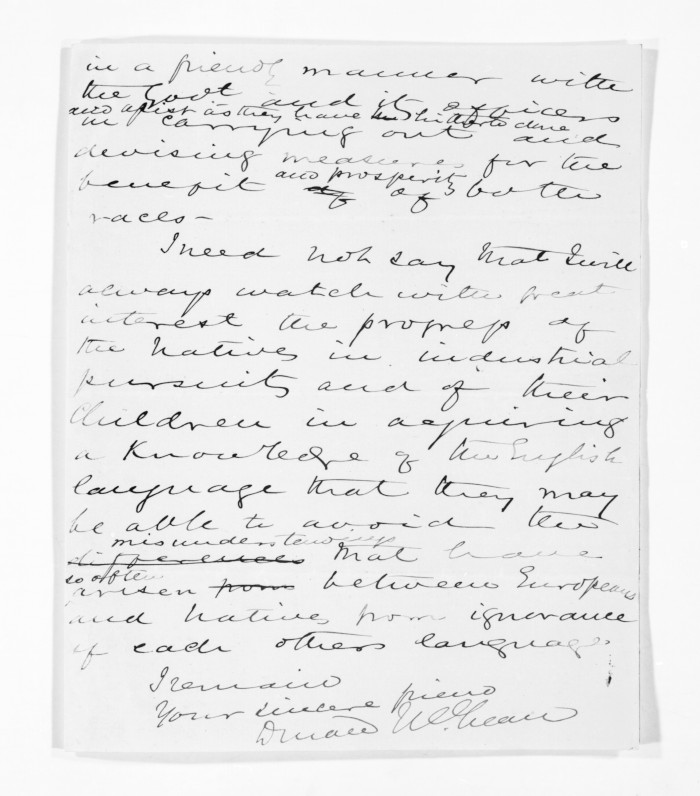 in a friendly manner with
the Govt and its officers
and assist as they have hitherto done
in carrying out and
devising measures for the
and prosperity
benefit of of both
races -
I need not say that I will
always watch with great
interest the progress of
the Natives in industrial
pursuits and of their
children in acquiring
a Knowledge of the English
language that they may
be able to avoid the
misunderstandings
differences that have
so often
arisen from between Europeans
and Natives from ignorance
of each others language
I remain
Your sincere friend
Donald McLean